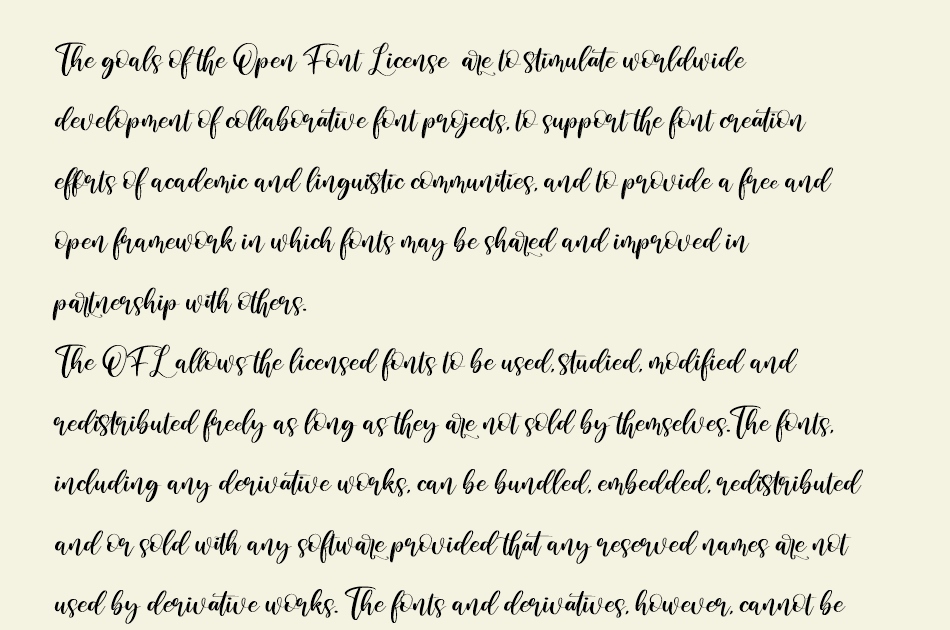 The goals of the Open Font License are to stimulate worldwide
development of collaborative font projects, to support the font creation
efforts of academic and linguistic communities, and to provide a free and
open framework in which fonts may be shared and improved in
partnership with others.
The OFL allows the licensed fonts to be used, studied, modified and
redistributed freely as long as they are not sold by themselves. The fonts,
including any derivative works, can be bundled, embedded, redistributed
and or sold with any software provided that any reserved names are not
used by derivative works. The fonts and derivatives, however, cannot be